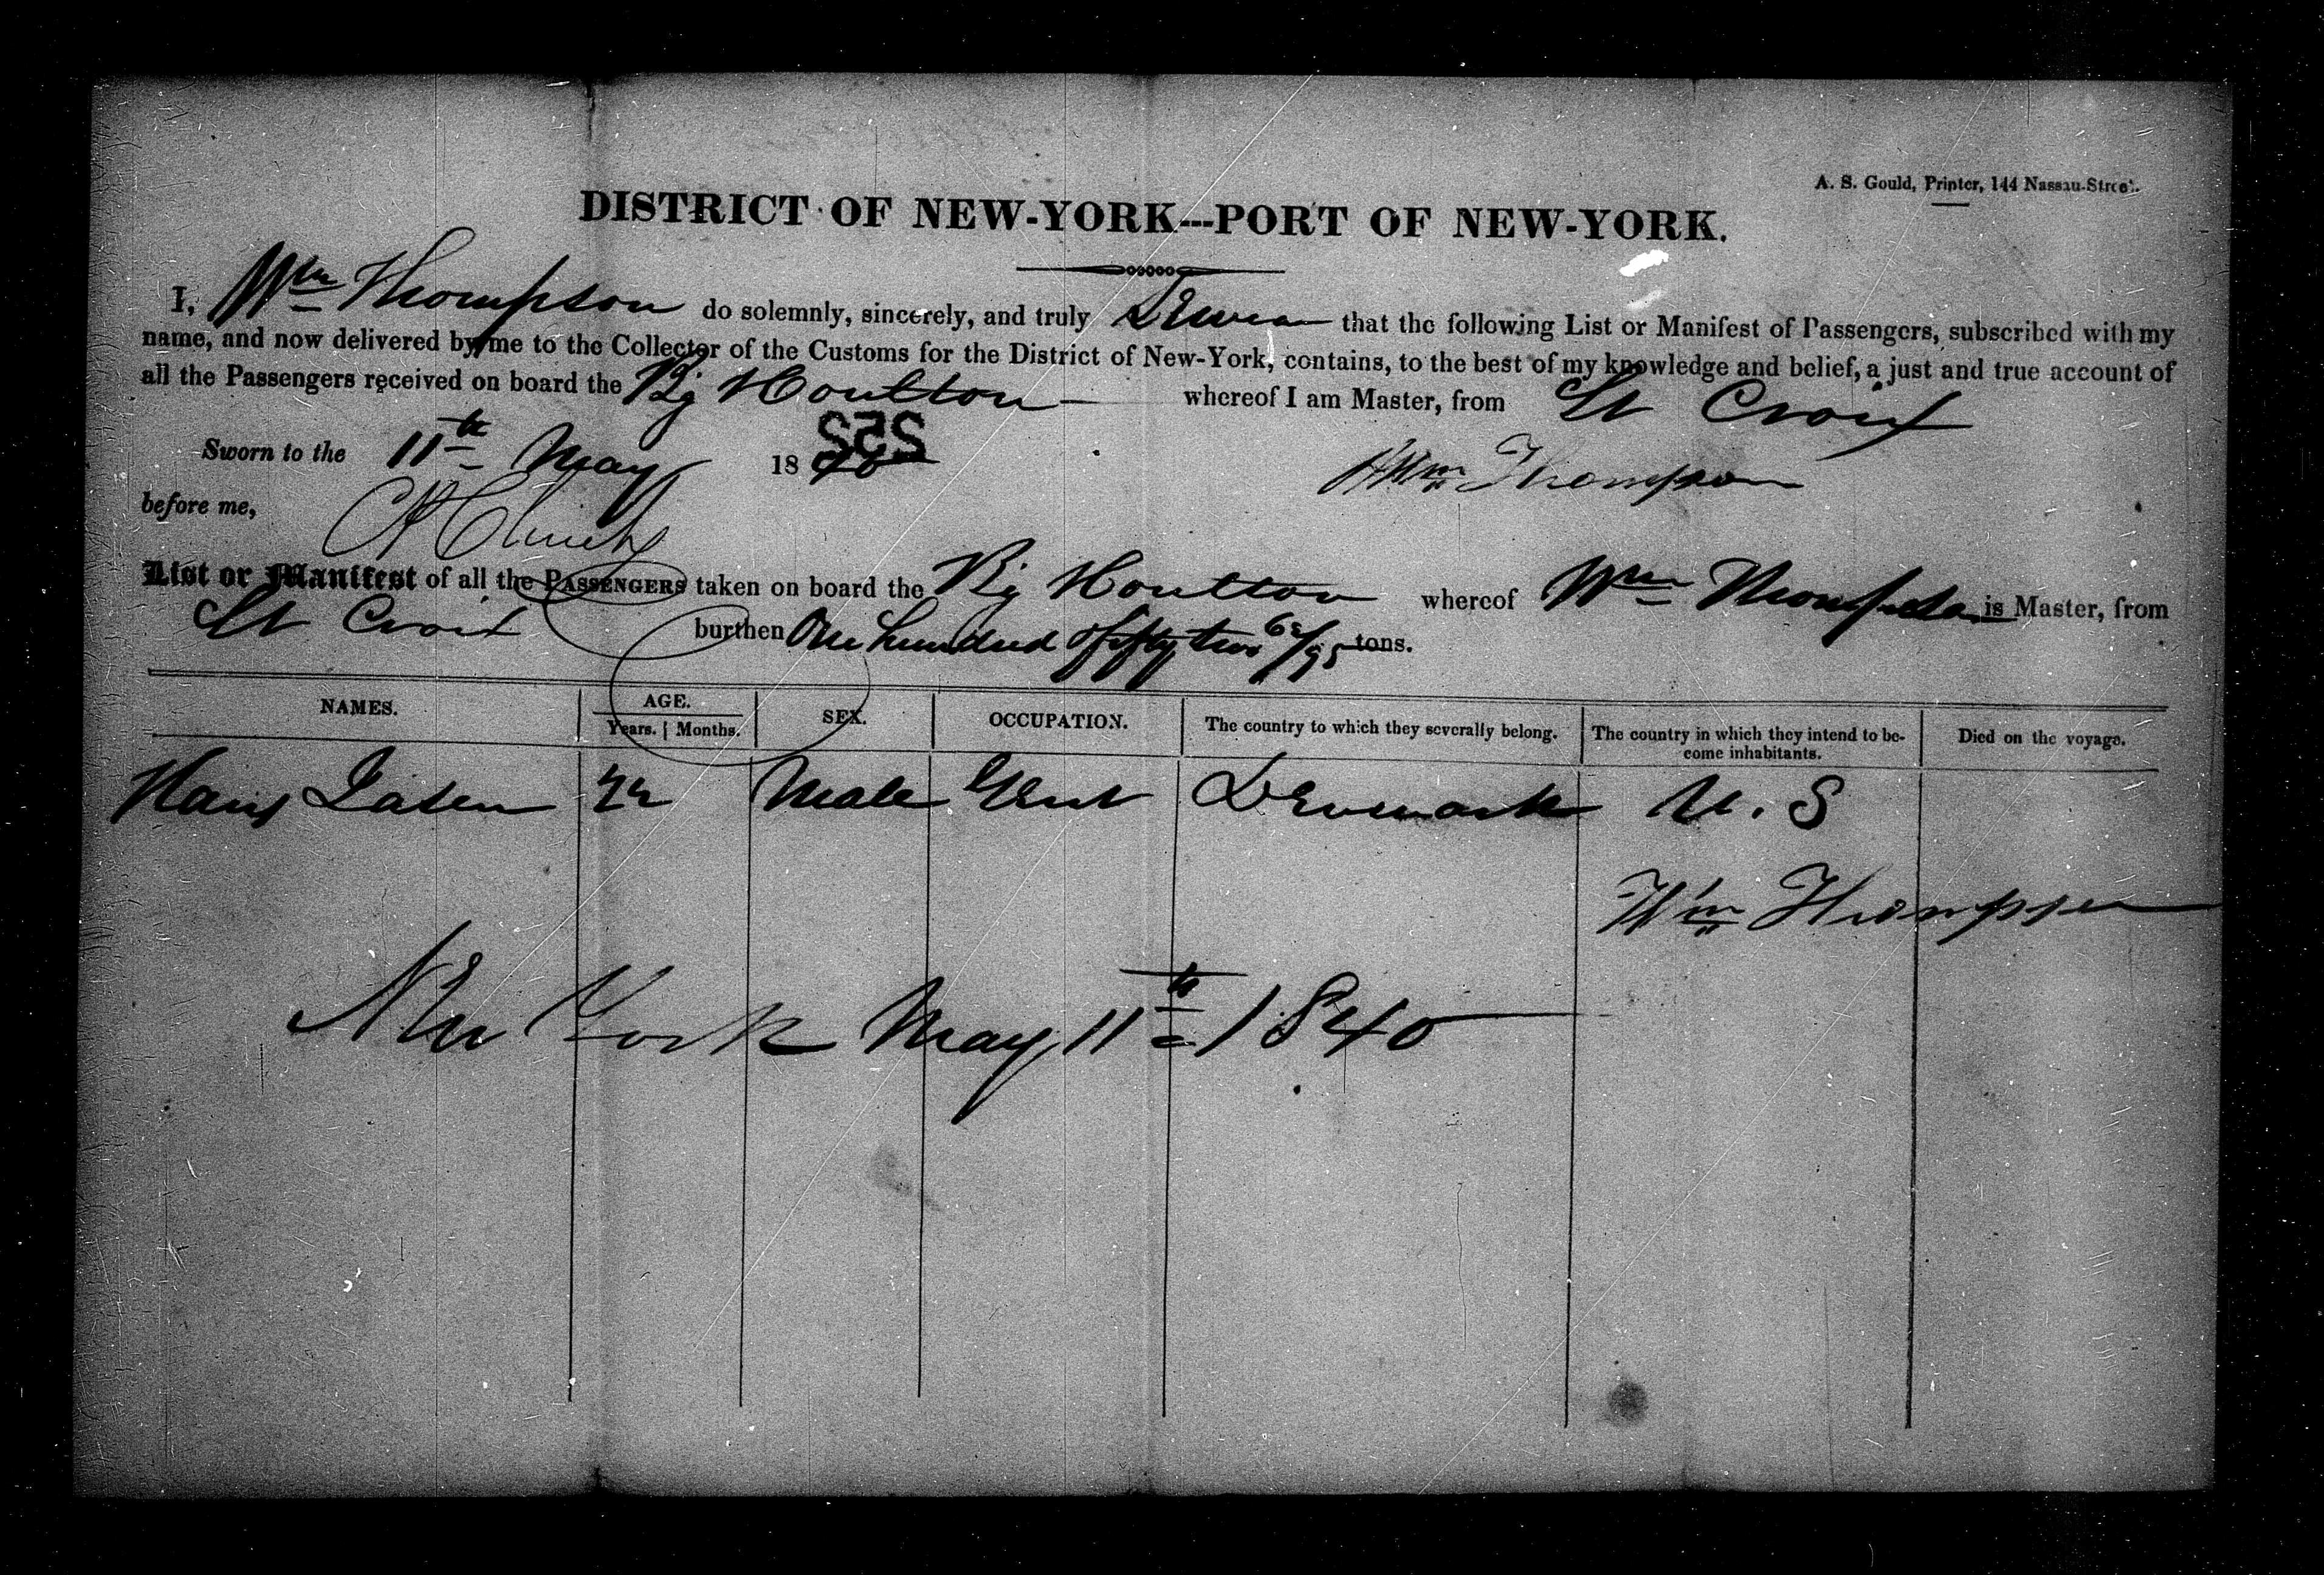 A. S. Gould, Printer, 144 Nassau-Street.
DISTRICT OF NEW-YORK---PORT OF NEW-YORK.
I, Wm Thompson do solemnly, sincerely, and truly Swear that the following List or Manifest of Passengers, subscribed with my
name, and now delivered by me to the Collector of the Customs for the District of New-York, contains, to the best of my knowledge and belief, a just and true account of
all the Passengers received on board the Bg Houlton whereof I am Master, from St Croix
252
Sworn to the 11th May 1840
Wm Thompson
before me,
List or Manifest of all the PASSENGERS taken on board the Bg Houlton whereof Wm Thompson is Master, from
St Croix burthen One hundred & fifty two tons.
NAMES. AGE. SEX. OCCUPATION. The country to which they severally belong. The country in which they intend to be- Died on the voyage.
Years. | Months. come inhabitants.
Hans Male Gent Denmark U. S
Wm Thompson
New York May 11th 1840